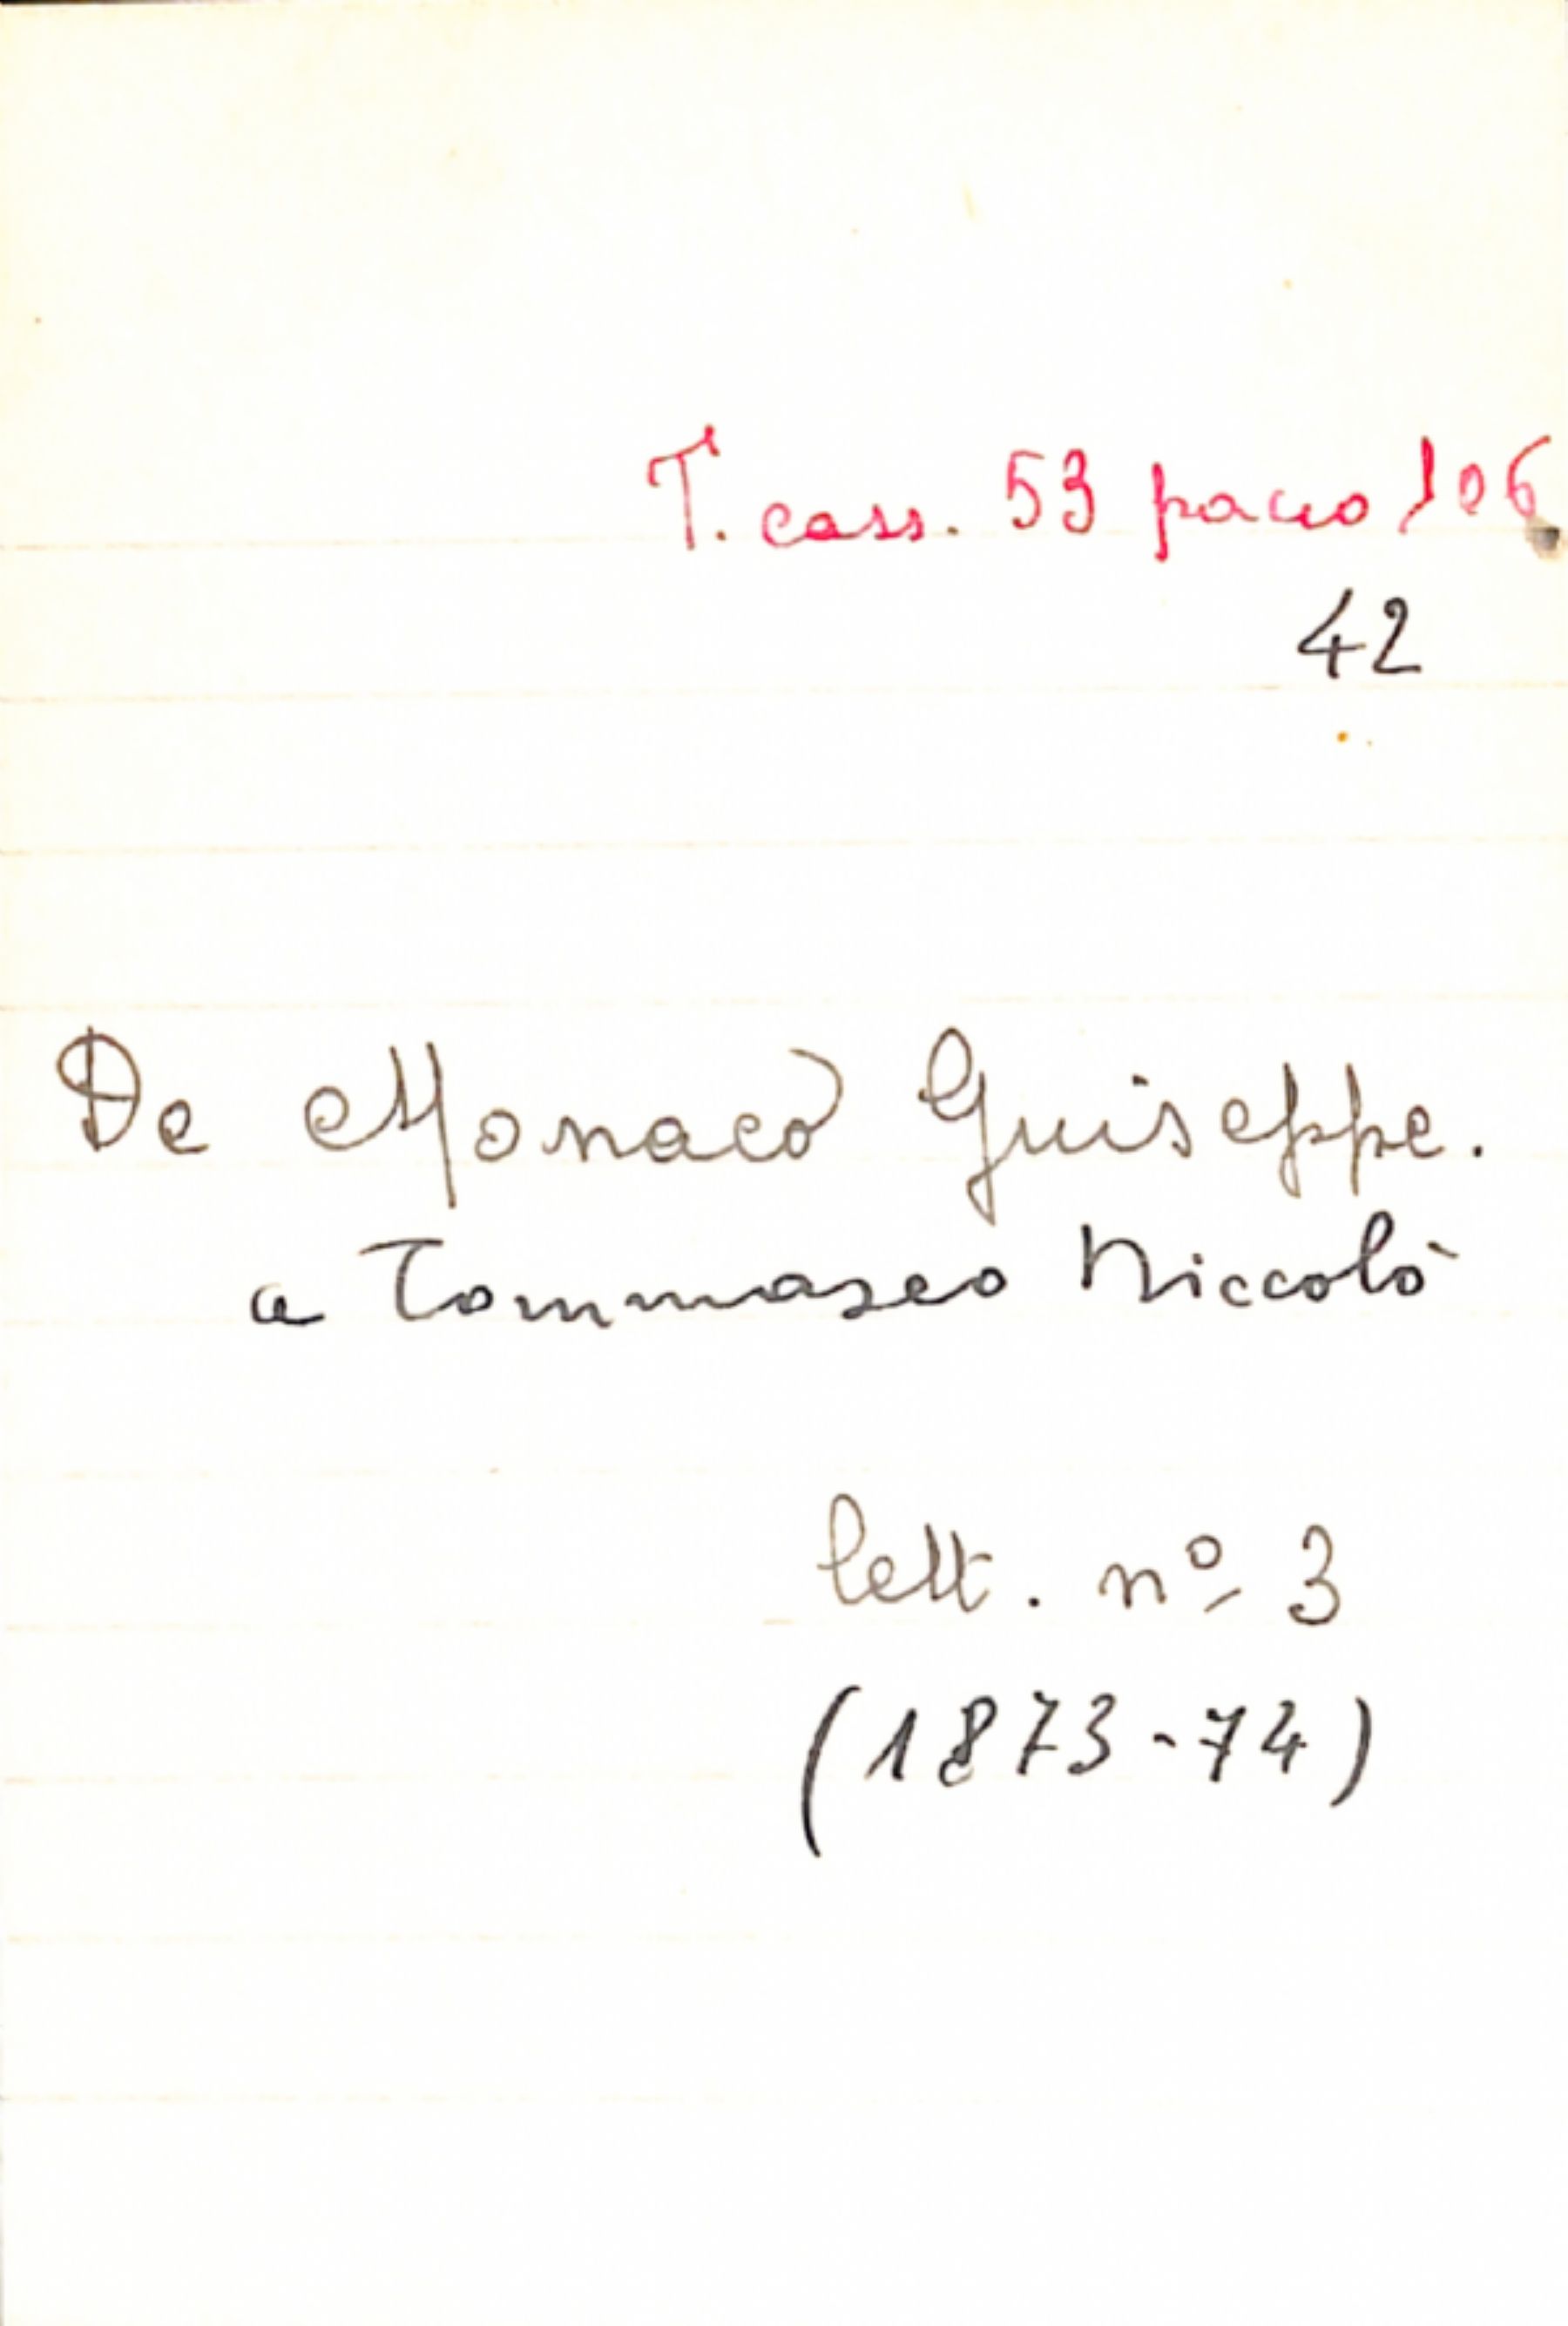 T. cass. 53 pacco 106
42
De Monaco Giuseppe.
a Tommaseo Niccolò
lett. nº 3
(1873-74)